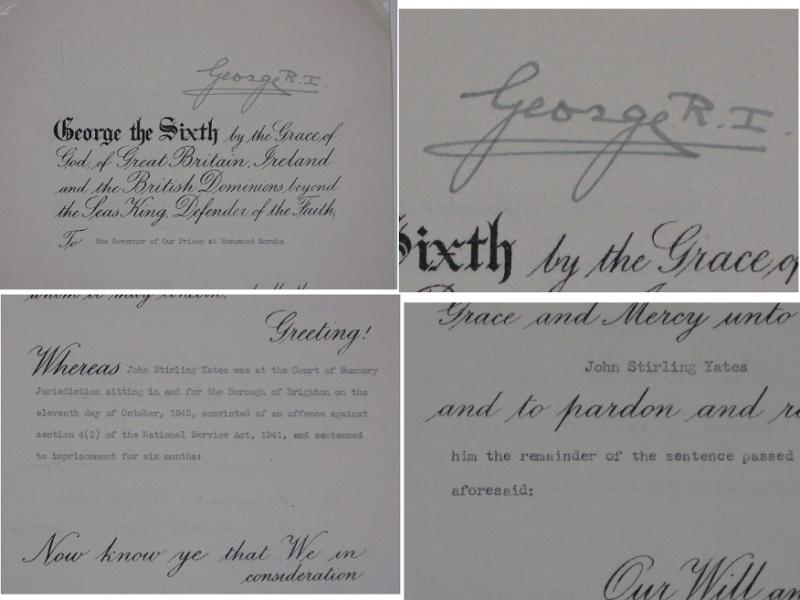 George R.I.
George the Sixth by the Grace of
God, of Great Britain, Ireland
and the British Dominions beyond
the Seas King, Defender of the Faith,
To the Governor of Our Prison at Wormwood Scrubs
George R.I.
Sixth by the Grace of
whom it may concern,
Greeting!
Whereas John Stirling Yates was at the Court of Summary
Jurisdiction sitting in and for the Borough of Brighton on the
eleventh day of October, 1945, convicted of an offence against
section 4(2) of the National Service Act, 1941, and sentenced
to imprisonment for six months:
Now know ye that We in
consideration
Grace and Mercy unto
John Stirling Yates
and to pardon and
him the remainder of the sentence passed
aforesaid:
Our Will